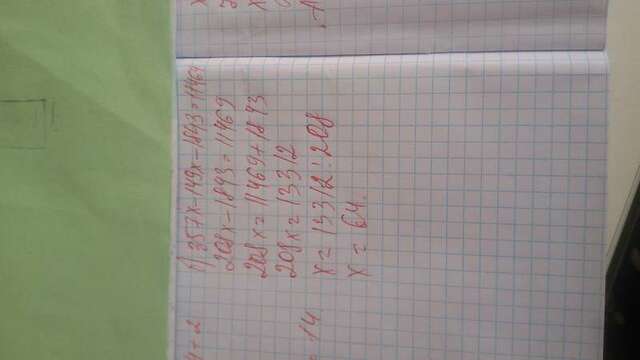 4 + 2
1) 357x - 149x - 1843 = 11469
208x - 1843 = 11469
208x = 11469 + 1843
208x = 13312
= 14
x = 13312 : 208
x = 64.